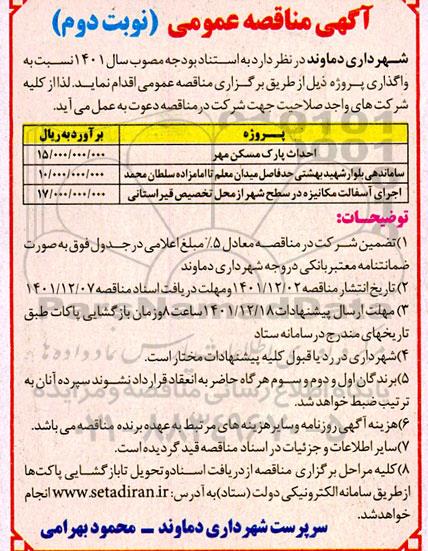 آگهی مناقصه عمومی (نوبت دوم)
شهرداری دماوند در نظر دارد به استناد بودجه مصوب سال ۱۴۰۱ نسبت به
واگذاری پروژه ذیل از طریق برگزاری مناقصه عمومی اقدام نماید. لذا از کلیه
شرکت های واجد صلاحیت جهت شرکت در مناقصه دعوت به عمل می آید.
پــروژه برآورد به ریال
احداث پارک مسکن مهر ۱۵/۰۰۰/۰۰۰/۰۰۰
ساماندهی بلوار شهید بهشتی حدفاصل میدان معلم تا امامزاده سلطان محمد ۱۰/۰۰۰/۰۰۰/۰۰۰
اجرای آسفالت مکانیزه در سطح شهر از محل تخصیص قیر استانی ۱۷/۰۰۰/۰۰۰/۰۰۰
توضیحات:
۱) تضمین شرکت در مناقصه معادل ۵٪ مبلغ اعلامی در جدول فوق به صورت
ضمانتنامه معتبر بانکی در وجه شهرداری دماوند
۲) تاریخ انتشار مناقصه ۱۴۰۱/۱۲/۰۲ و مهلت دریافت اسناد مناقصه ۱۴۰۱/۱۲/۰۷
۳) مهلت ارسال پیشنهادات ۱۴۰۱/۱۲/۱۸ ساعت ۸ وزمان بازگشایی پاکات طبق
تاریخهای مندرج در سامانه ستاد
۴) شهرداری در رد یا قبول کلیه پیشنهادات مختار است.
۵) برندگان اول و دوم و سوم هرگاه حاضر به انعقاد قرارداد نشوند سپرده آنان به
ترتیب ضبط خواهد شد.
۶) هزینه آگهی روزنامه و سایر هزینه های مرتبط به عهده برنده مناقصه می باشد.
۷) سایر اطلاعات و جزئیات در اسناد مناقصه قید گردیده است.
۸) کلیه مراحل برگزاری مناقصه از دریافت اسناد و تحویل تا بازگشایی پاکت ها
از طریق سامانه الکترونیکی دولت (ستاد) به آدرس: www.setadiran.ir انجام
خواهد شد.
سرپرست شهرداری دماوند ــ محمود بهرامی